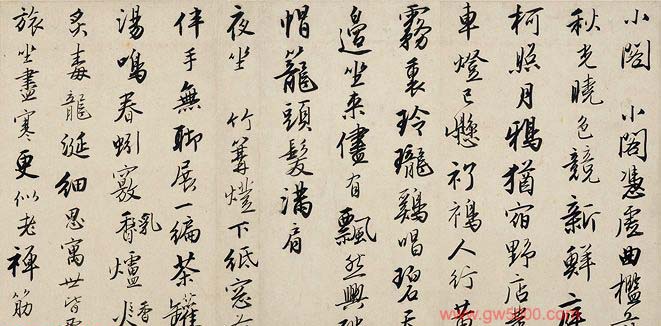 小閣　小閣憑虛曲檻
秋光曉色競新鮮
柯照月鴉猶宿野店
車燈已懸衫襪人行
霧裏玲瓏鷄唱碧天
邊坐来儘有飄然興
帽籠頭髮滿肩
夜坐　竹篝燈下紙窓前
伴手無聊展一編茶罐
湯鳴春蚓竅乳香爐
炙毒龍涎細思寓世皆
旅坐盡寒更似老禪筋
www.gw5800.com